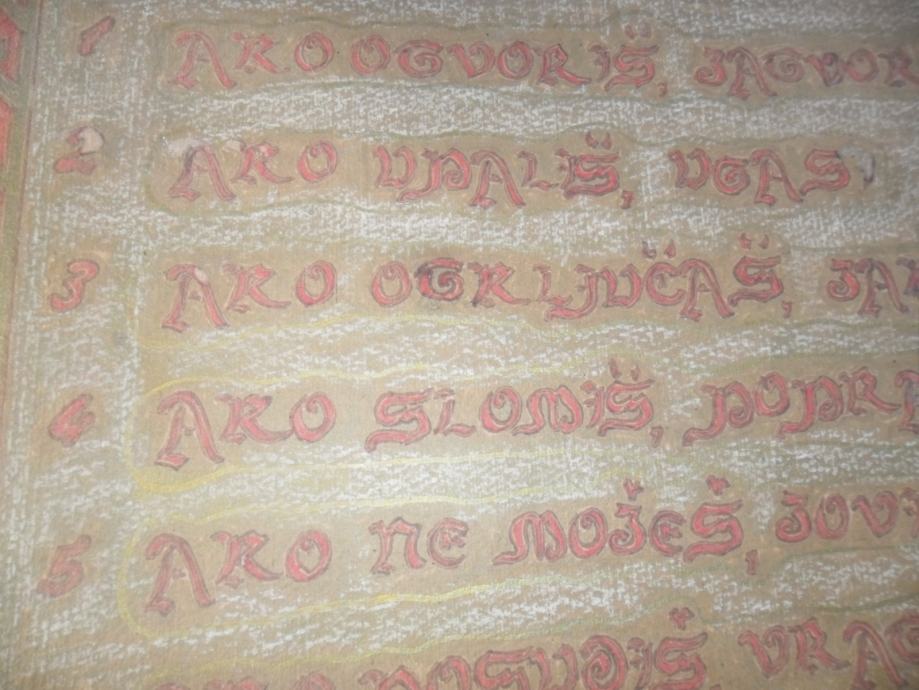 1 AKO OTVORIŠ, ZATVOR
2 AKO UPALIŠ, UGASI
3 AKO OTKLJUČAŠ, ZAK
4 AKO SLOMIŠ, POPR
5 AKO NE MOŽEŠ, ZOV
AKO POSUDIŠ, VRA